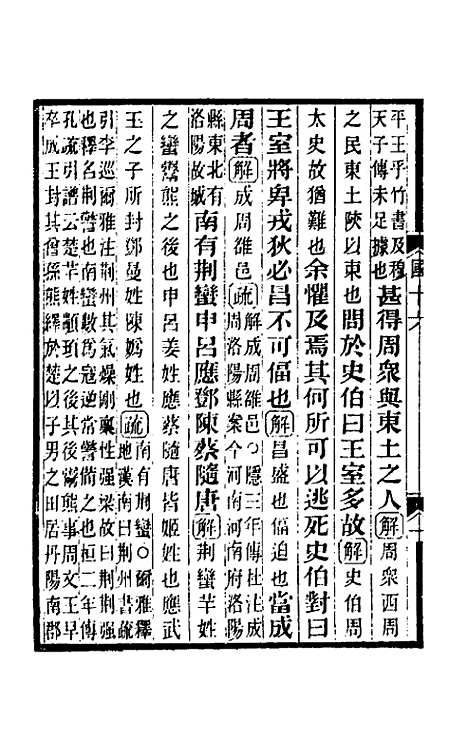 平王乎竹書及穆
天子傳未足據也甚得周衆與東土之人解周衆西周
之民東土陝以東也問於史伯曰王室多故解史伯周
太史故猶難也余懼及焉其何所可以逃死史伯對曰
王室將卑戎狄必昌不可偪也解昌盛也偪迫也當成
周者解成周雒邑疏解成周雒邑○隱三年傳杜注成
周洛陽縣案今河南河南府洛陽
縣東北有
洛陽故城南有荆蠻申呂應鄧陳蔡隨唐解荆蠻芈姓
之蠻鬻熊之後也申呂姜姓應蔡隨唐皆姬姓也應武
王之子所封鄧曼姓陳嬀姓也疏南有荆蠻○爾雅釋
地漢南曰荆州書疏
引李巡爾雅注荆州其氣燥剛稟性强梁故曰荆荆强
也釋名荆警也南蠻數爲寇逆常警備之也桓二年傳
孔疏引譜云楚芈姓顓頊之後其後鬻熊事周文王早
卒成王封其曾孫熊繹於楚以子男之田居丹陽南郡
國十六